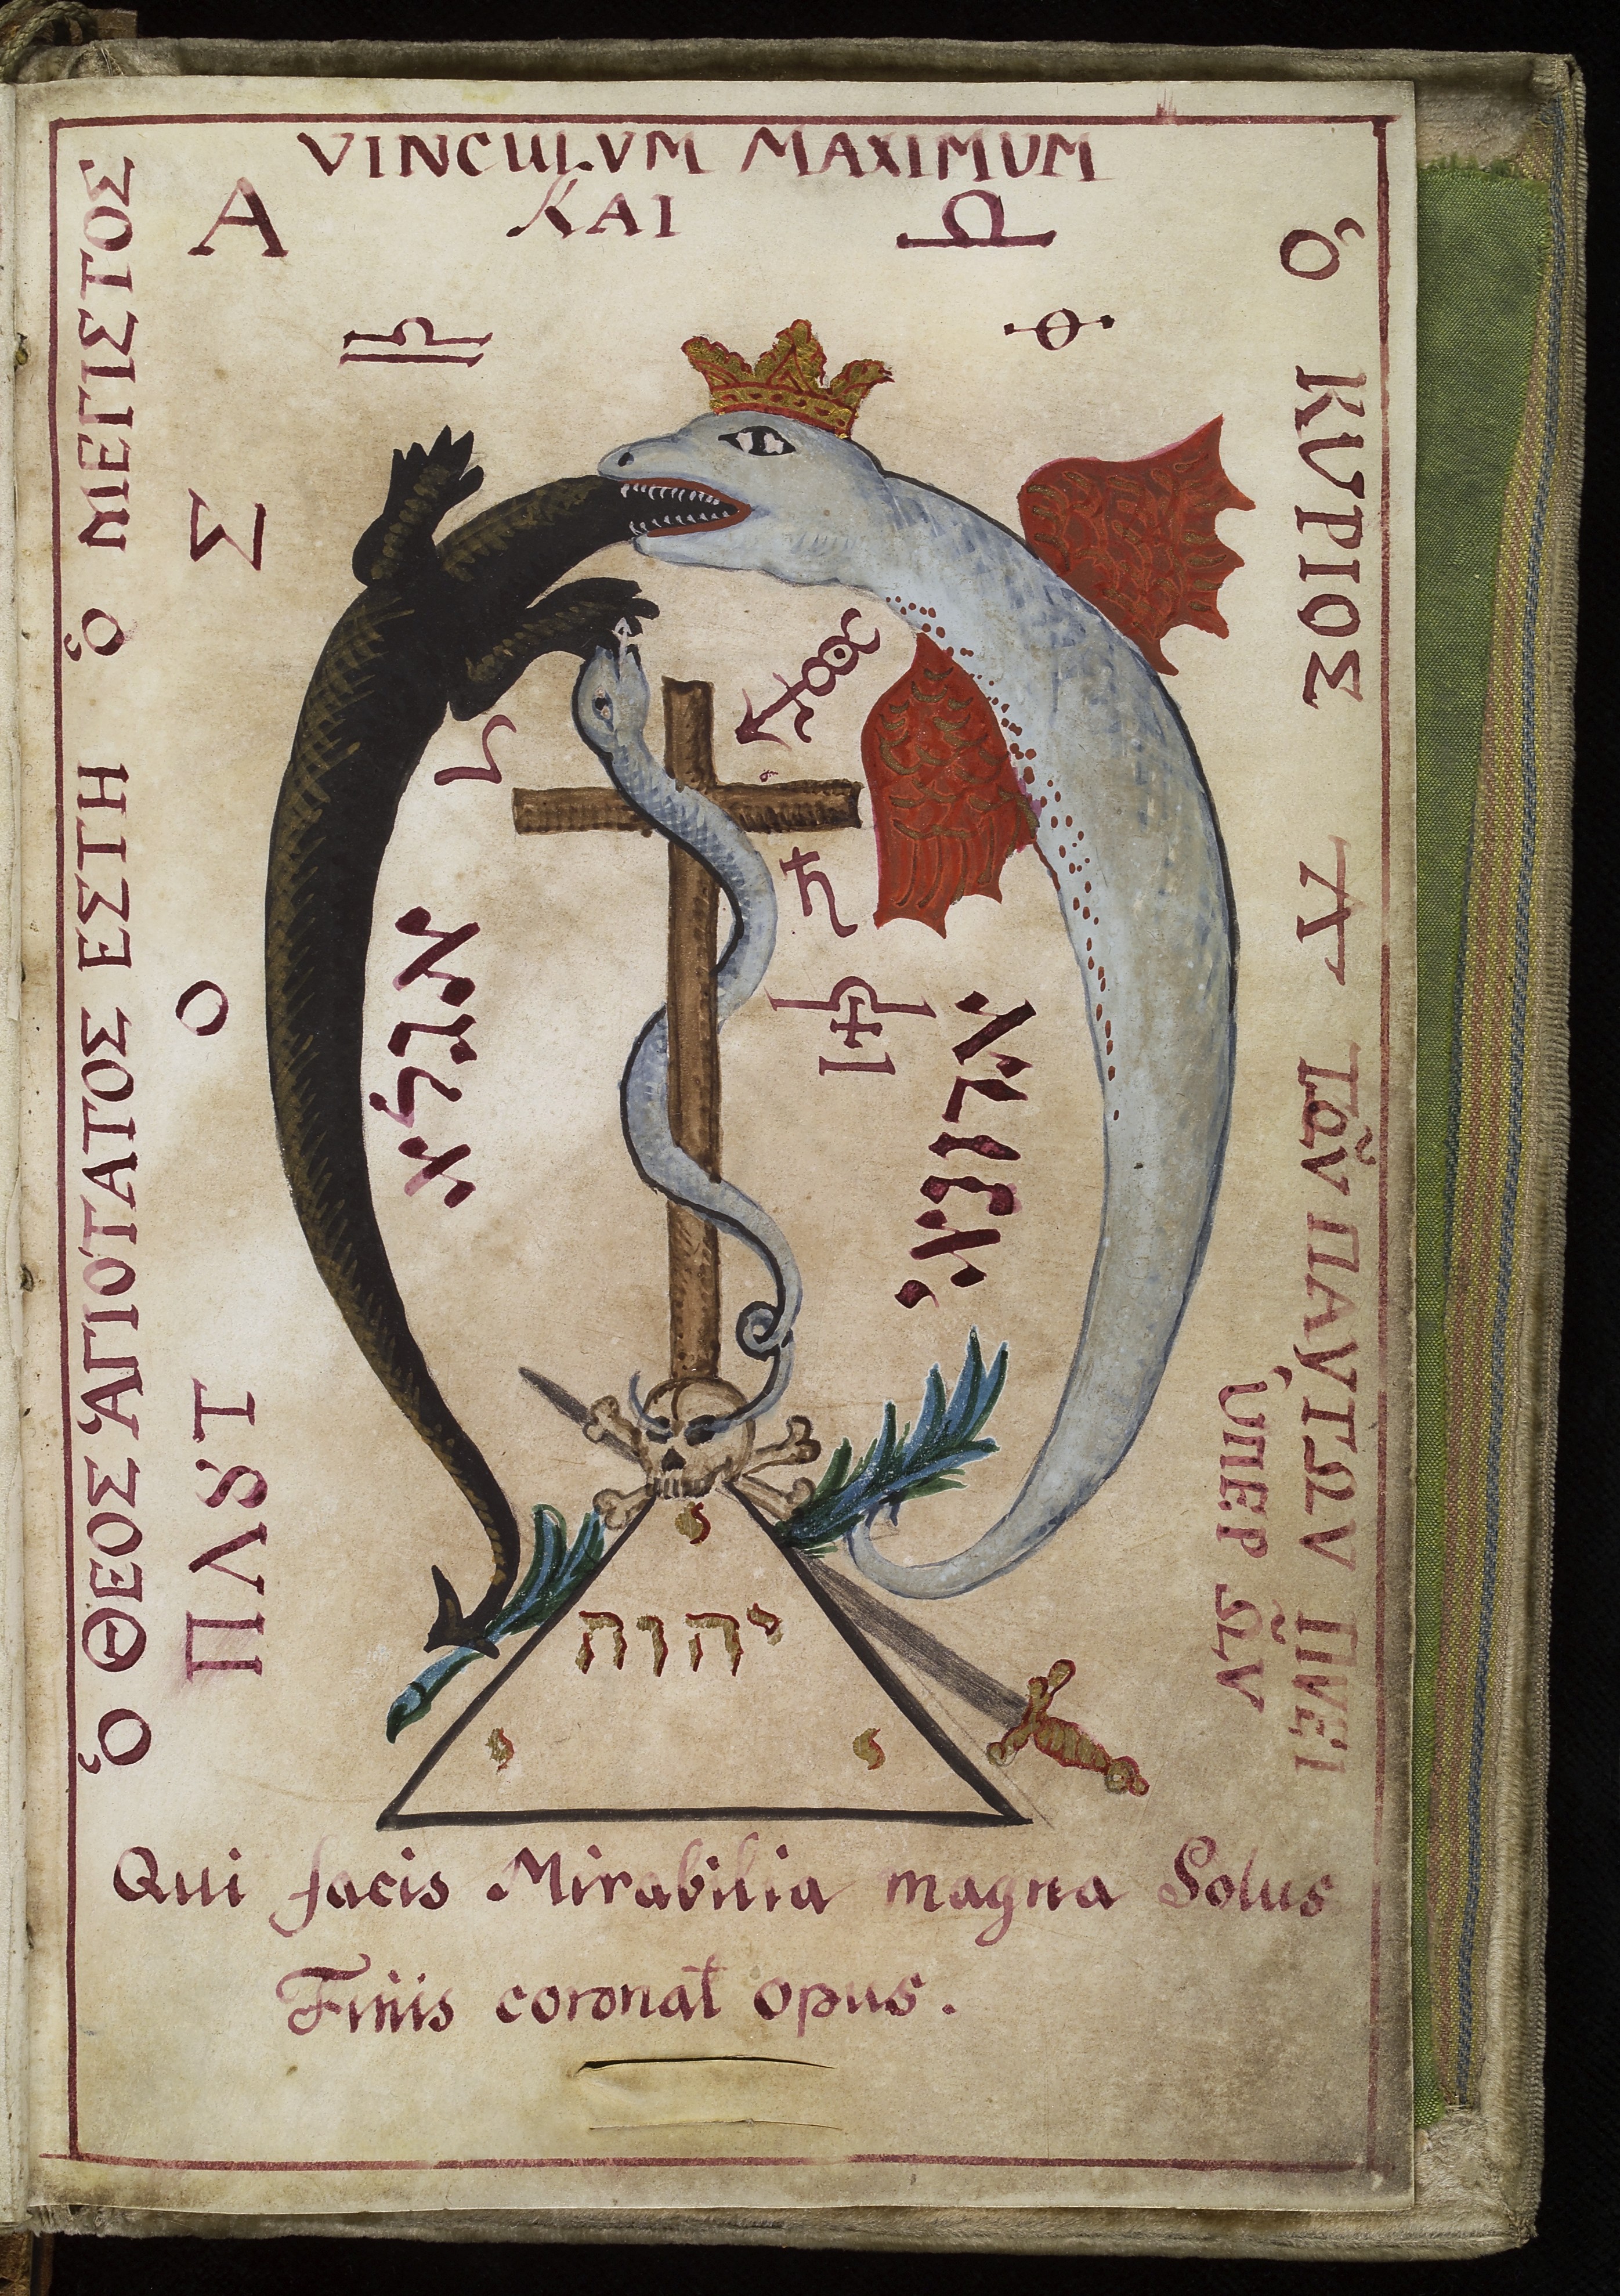 VINCULVM MAXIMUM
Α ΚΑΙ Ω
Ὁ ΘΕΟΣ ἉΓΙΟΤΑΤΟΣ ΕΣΤΗ Ὁ ΜΕΓΙΣΤΟΣ
Σ
Ο
Ὁ ΚΥΡΙΟΣ
ΠΑΝΤΩΝ
ὙΠΕΡ ΩΝ
אגלא
אדוני
י
יהוה
י י
Qui facis Mirabilia magna Solus
Finis coronat opus.